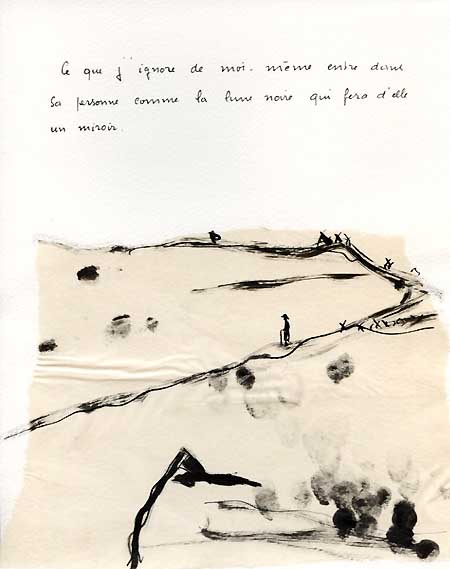 Ce que j'ignore de moi-même entre dans
sa personne comme la lune noire qui fera d'elle
un miroir.